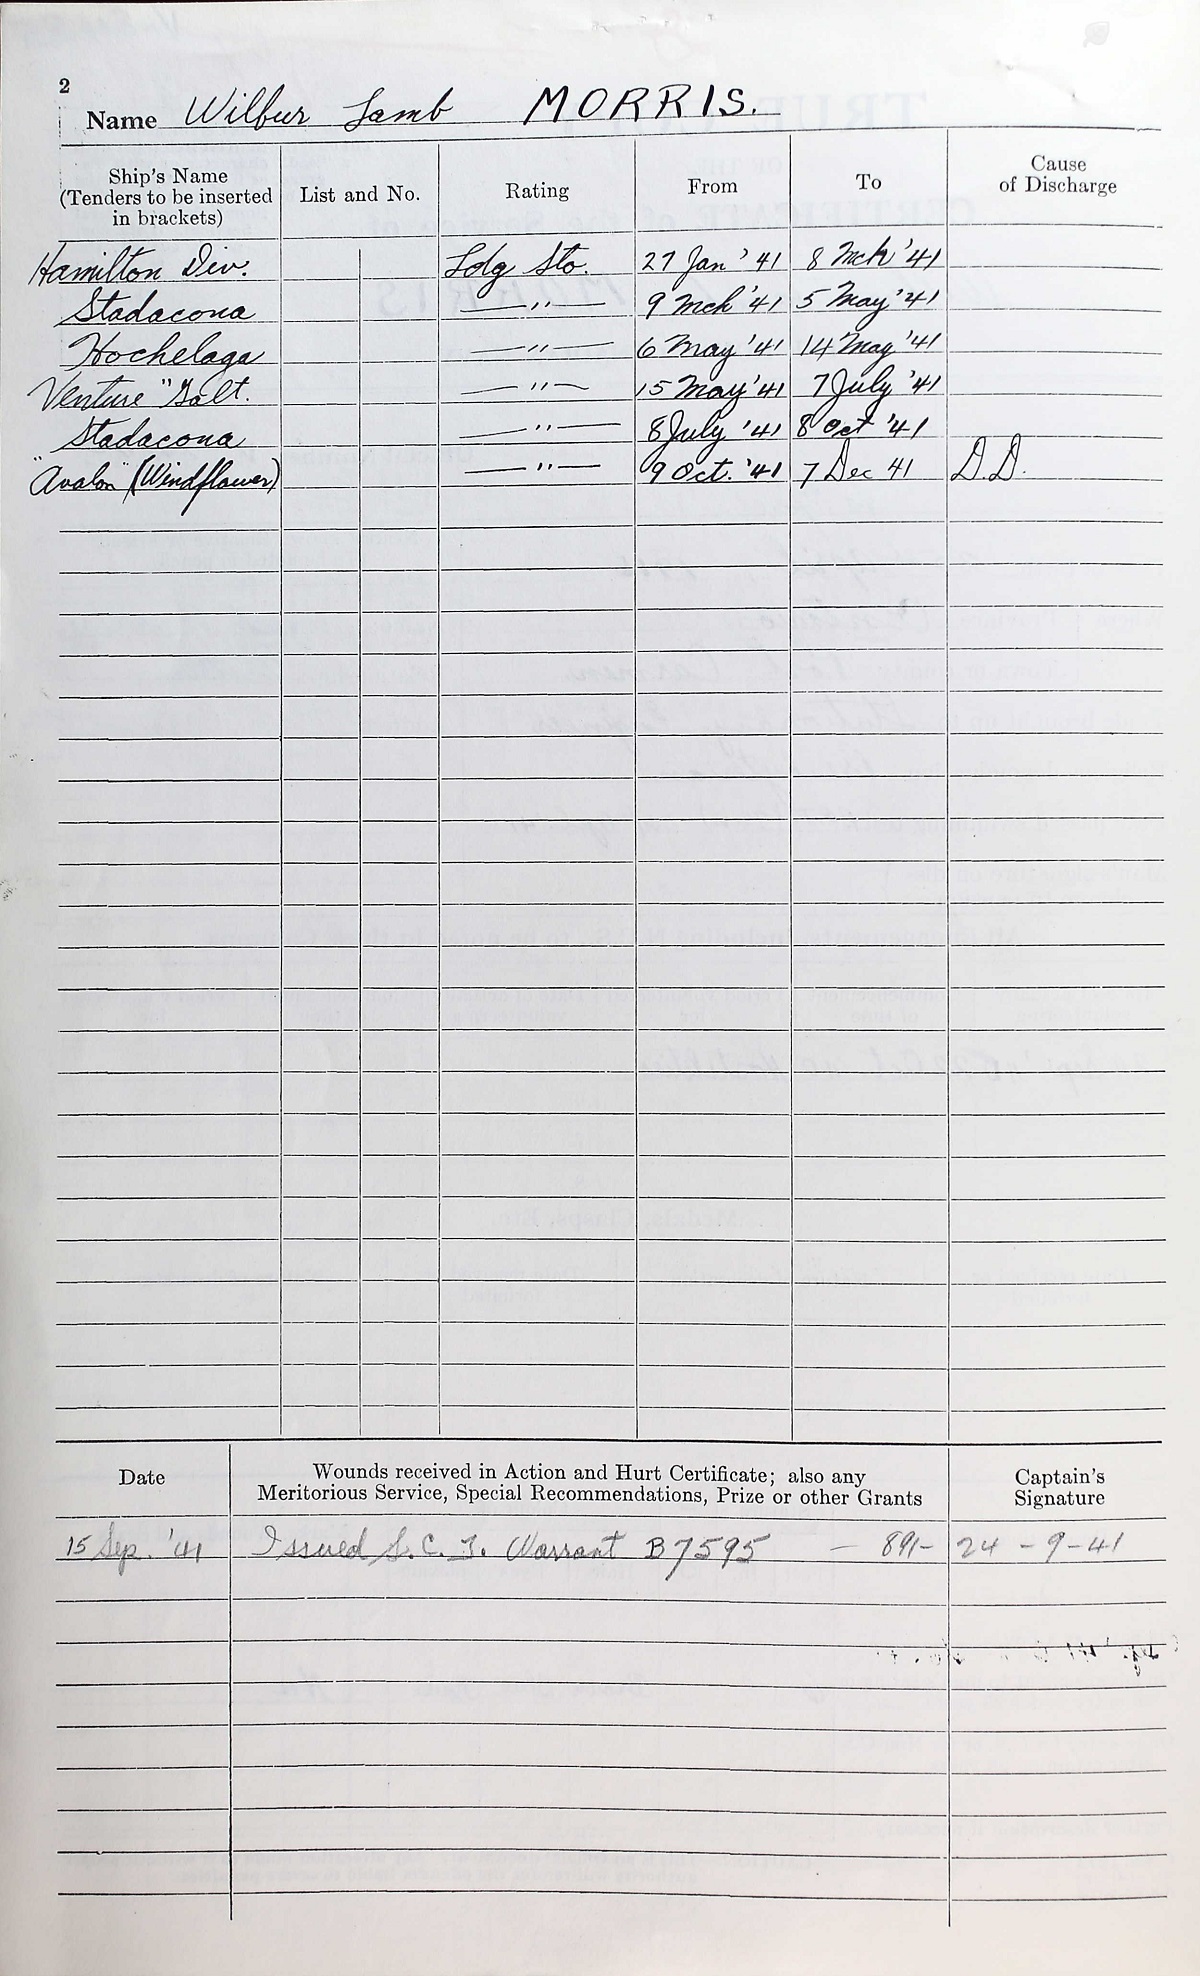 2
Name Wilbur Lamb MORRIS.
Ship's Name (Tenders to be inserted in brackets) List and No. Rating From To Cause of Discharge
Hamilton Div. Ldg Sto. 27 Jan '41 8 Mch '41
Stadacona —"— 9 Mch '41 5 May '41
Hochelaga —"— 6 May '41 14 May '41
Venture "Galt. —"— 15 May '41 7 July '41
Stadacona —"— 8 July '41 8 Oct '41
"Avalon" (Windflower) —"— 9 Oct. '41 7 Dec 41 D.D.
Date Wounds received in Action and Hurt Certificate; also any Meritorious Service, Special Recommendations, Prize or other Grants Captain's Signature
15 Sep. '41 Issued S. C. T. Warrant B7595 — 891- 24 - 9 - 41